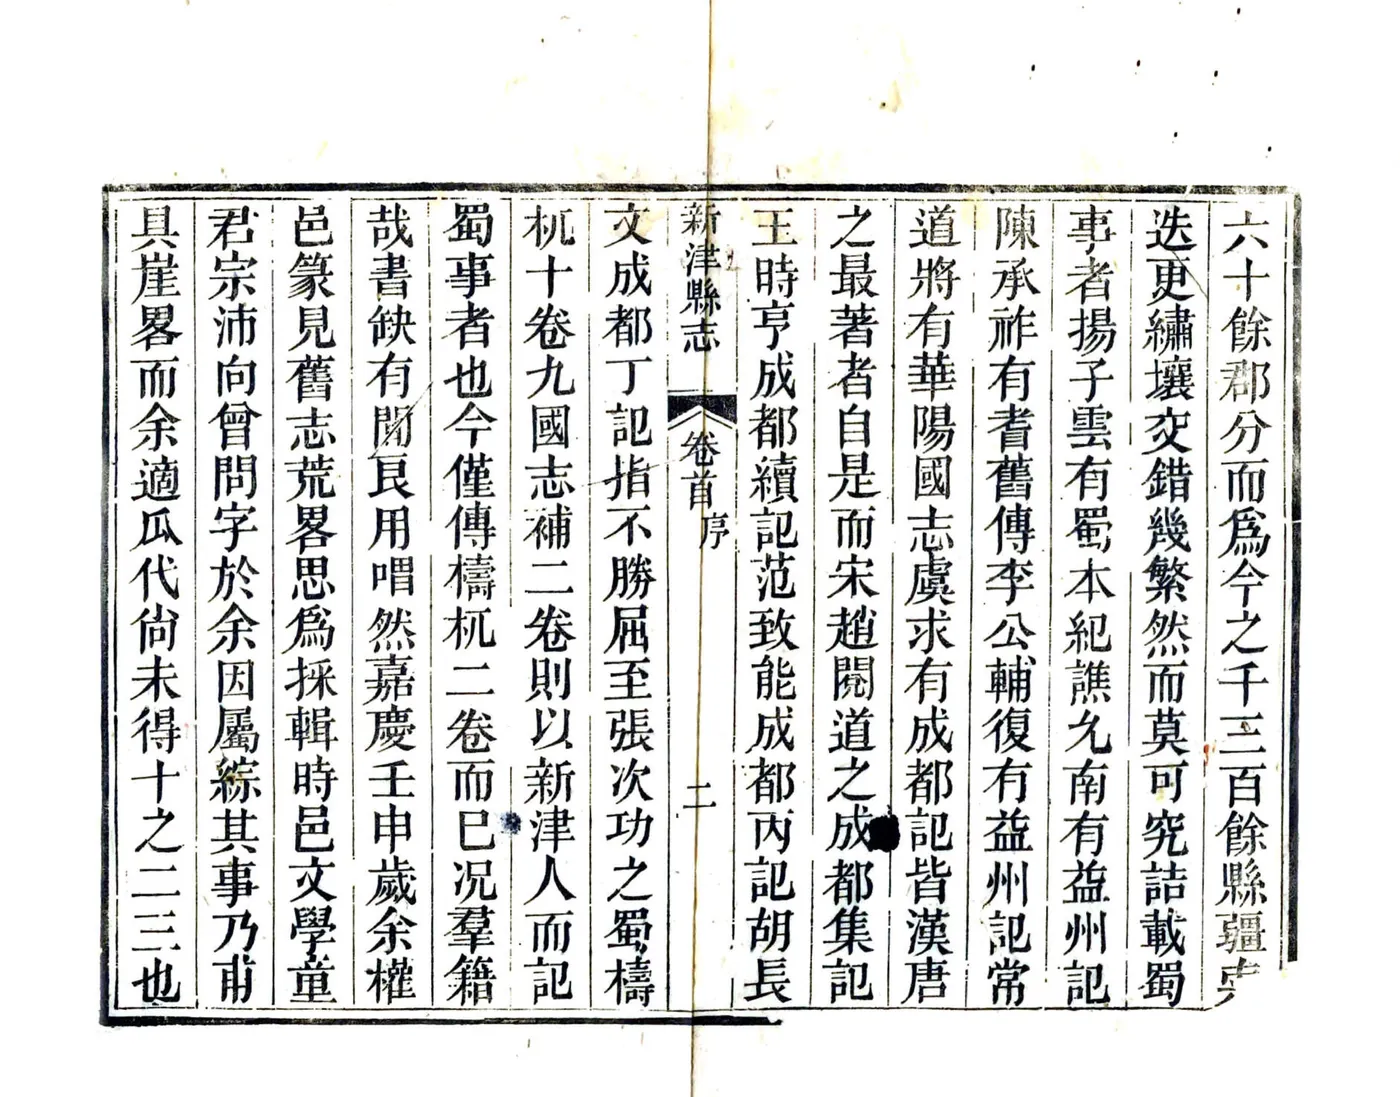 六十餘郡分而爲今之千三百餘縣疆
迭更繡壤交錯幾繁然而莫可究詰載蜀
事者揚子雲有蜀本紀譙允南有益州記
陳承祚有耆舊傳李公輔復有益州記常
道將有華陽國志虞求有成都記皆漢唐
之最著者自是而宋趙閱道之成都集記
王時亨成都續記范致能成都丙記胡長
新津縣志
卷首
序
二
文成都丁記指不勝屈至張次功之蜀檮
杌十卷九國志補二卷則以新津人而記
蜀事者也今僅傳檮杌二卷而巳况羣籍
哉書缺有閒良用喟然嘉慶壬申歲余權
邑篆見舊志荒畧思爲採輯時邑文學童
君宗沛向曾問字於余因屬綜其事乃甫
具崖畧而余適瓜代尙未得十之二三也